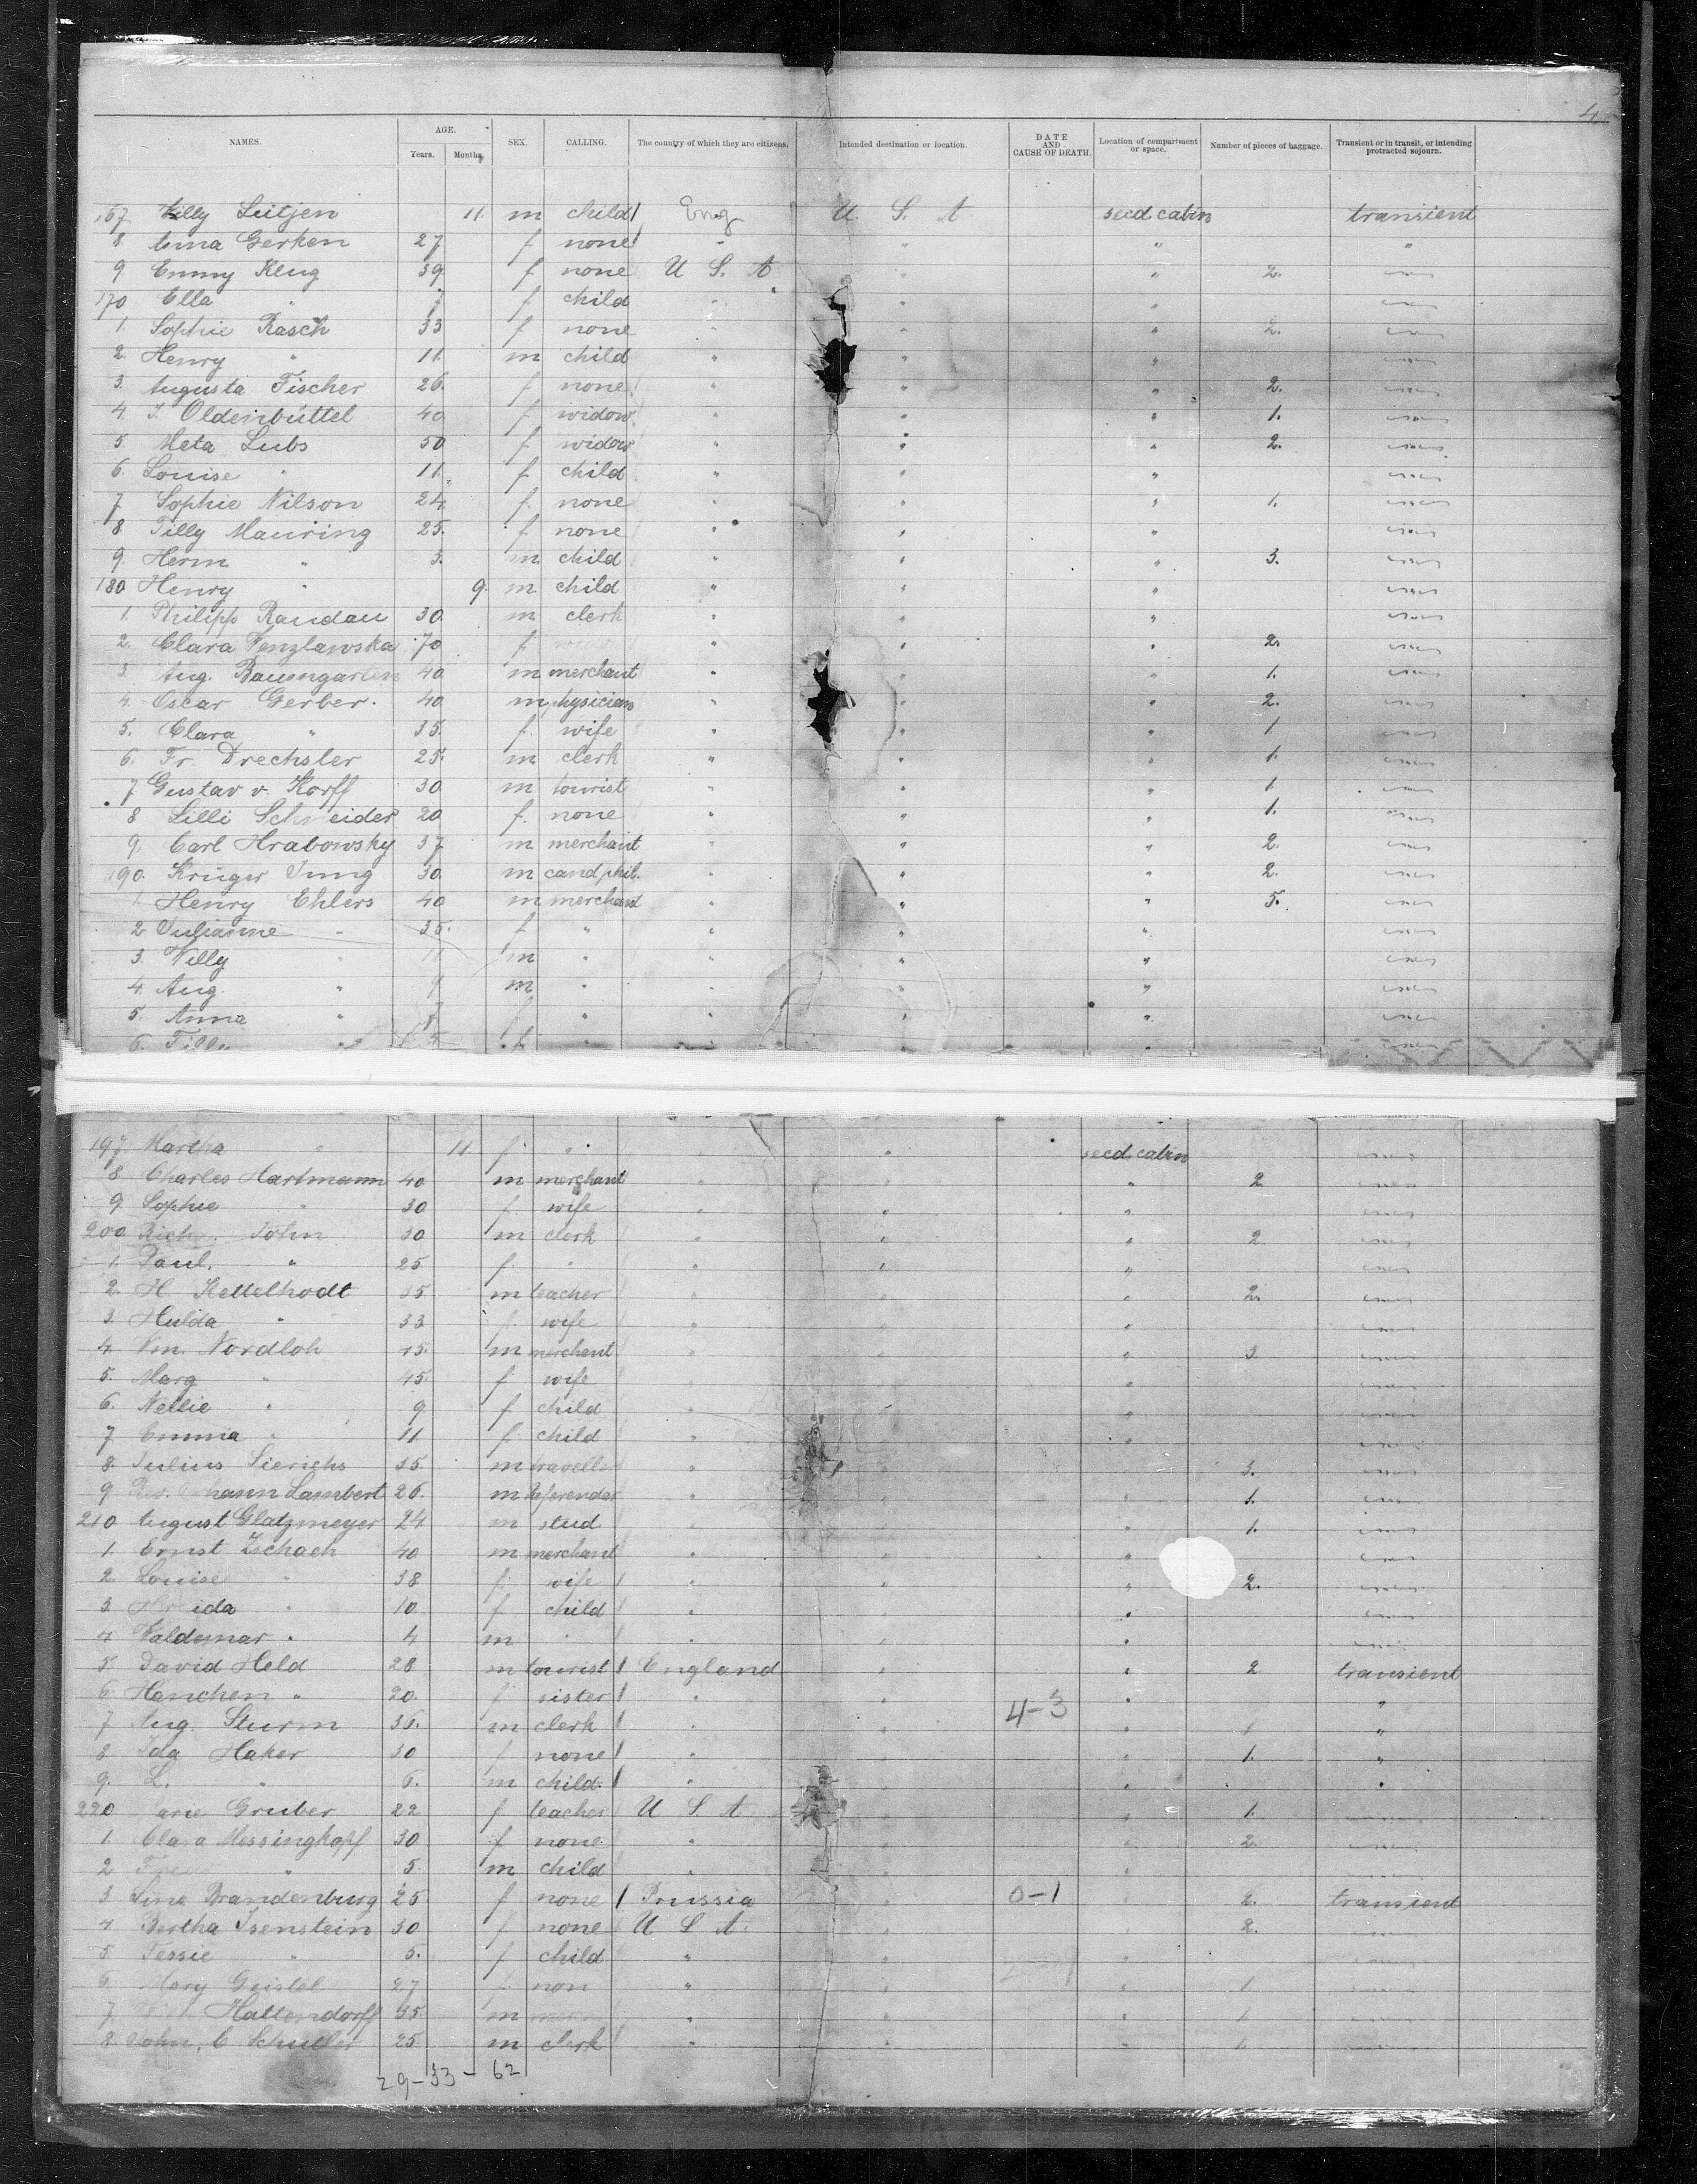 4
NAMES. AGE. Years. Months. SEX. CALLING. The country of which they are citizens. Intended destination or location. DATE AND CAUSE OF DEATH. Location of compartment or space. Number of pieces of baggage. Transient or in transit, or intending protracted sojourn.
167 Willy Lütjen 11. m child Eng U. S. A secd cabin transient
8. Anna Gerken 27 f. none " " " "
9. Emmy Klug 39 f none U S. A " " 2.
170 Ella " f. child " " "
1. Sophie Rasch 33 f none " " " 2.
2. Henry " 11. m child " " "
3. Augusta Fischer 26. f none " " " 2.
4. J. Oldenbüttel 40 f widow " " " 1.
5 Meta Lubs 50 f widow " " " 2.
6. Louise " 11. f child " " "
7. Sophie Nilson 24 f. none " " " 1.
8 Tilly Mauring 25. f none " " "
9. Herm " 3. m child " " " 3.
180 Henry " 9. m child " " "
1. Philipp Randau 30 m clerk " " "
2. Clara Wenzlawska 70 f " " " 2.
3. Aug. Baumgarten 40 m merchant " " " 1.
4. Oscar Gerber. 40 m physician " " " 2.
5. Clara " 35. f. wife " " " 1
6. Fr. Drechsler 25. m clerk " " " 1.
7 Gustav v. Korff 30 m tourist " " " 1
8 Lilli Schneider 20 f. none " " " 1.
9. Carl Hrabowsky 37 m merchant " " " 2.
190. Krüger Jung 30. m cand phil. " " " 2.
1. Henry Ehlers 40 m merchand " " " 5.
2 Julianne " 35. f " " " "
3. Willy " 11 m " " " "
4. Aug. " 9 m " " " "
5. Anna " 7 f " " " "
6. Tilly " 5 f. " "
197 Martha " 11 f. " " " secd cabin
8. Charles Hartmann 40 m merchant " " " 2
9. Sophie " 30 f. wife " " "
200 Rich. John 30 m clerk " " " 2
1. Paul. " 25 f. " " " "
2. H. Kettelhodt 35 m teacher " " " 2.
3. Hulda " 33 f. wife " " "
4. Wm. Nordloh 45. m merchant " " " 3
5. Marg " 45. f wife " " "
6. Nellie " 9 f child " " "
7 Emma " 11 f. child " " "
8. Julius Sierichs 35. m traveller " " " 3.
9 Lambert 26. m Referendar " " " 1.
210 August Glatzmeyer 24 m stud " " " 1.
1. Ernst Zschach 40 m merchant " " "
2. Louise " 38 f. wife " " " 2.
3. " 10. f child " " "
4 Waldemar " 4 m " " " "
5. David Held 28 m tourist England " " 2 transient
6. Hanchen " 20. f sister " " " "
4-3
7 Aug. Sturm 36. m clerk " " " 1 "
8 Ida Haker 30 f none " " " 1. "
9. L. " 6. m child. " " " "
220 Marie Gruber 22 f teacher U S A " " 1.
1 Clara Messingkopf 30 f none " " " 2.
2 " 5. m child " " "
3 Line Brandenburg 25 f none Prussia " 0-1 " 2. transient
4 Bertha Isenstein 30 f none U S A. " " 2.
5 Jessie " 5. f child " " "
6. Mary Geistel 27 f non " " " 1
7 Hattendorff 35. m " " " 1
8. John. C Schutler 25. m clerk " " " 1.
29-33-62